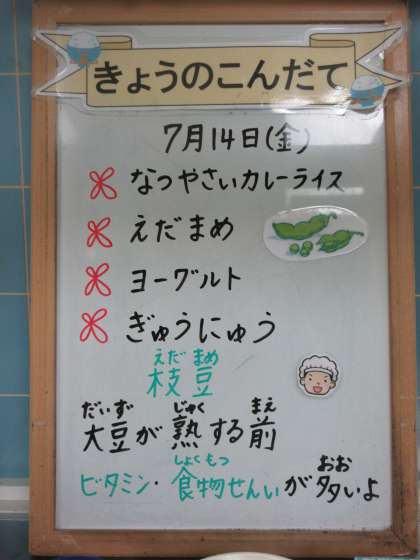 きょうのこんだて
7月14日(金)
なつやさいカレーライス
えだまめ
ヨーグルト
ぎゅうにゅう
えだ まめ
枝豆
だいず じゅく まえ
大豆が熟する前
しょくもつ おお
ビタミン・食物せんいが多いよ